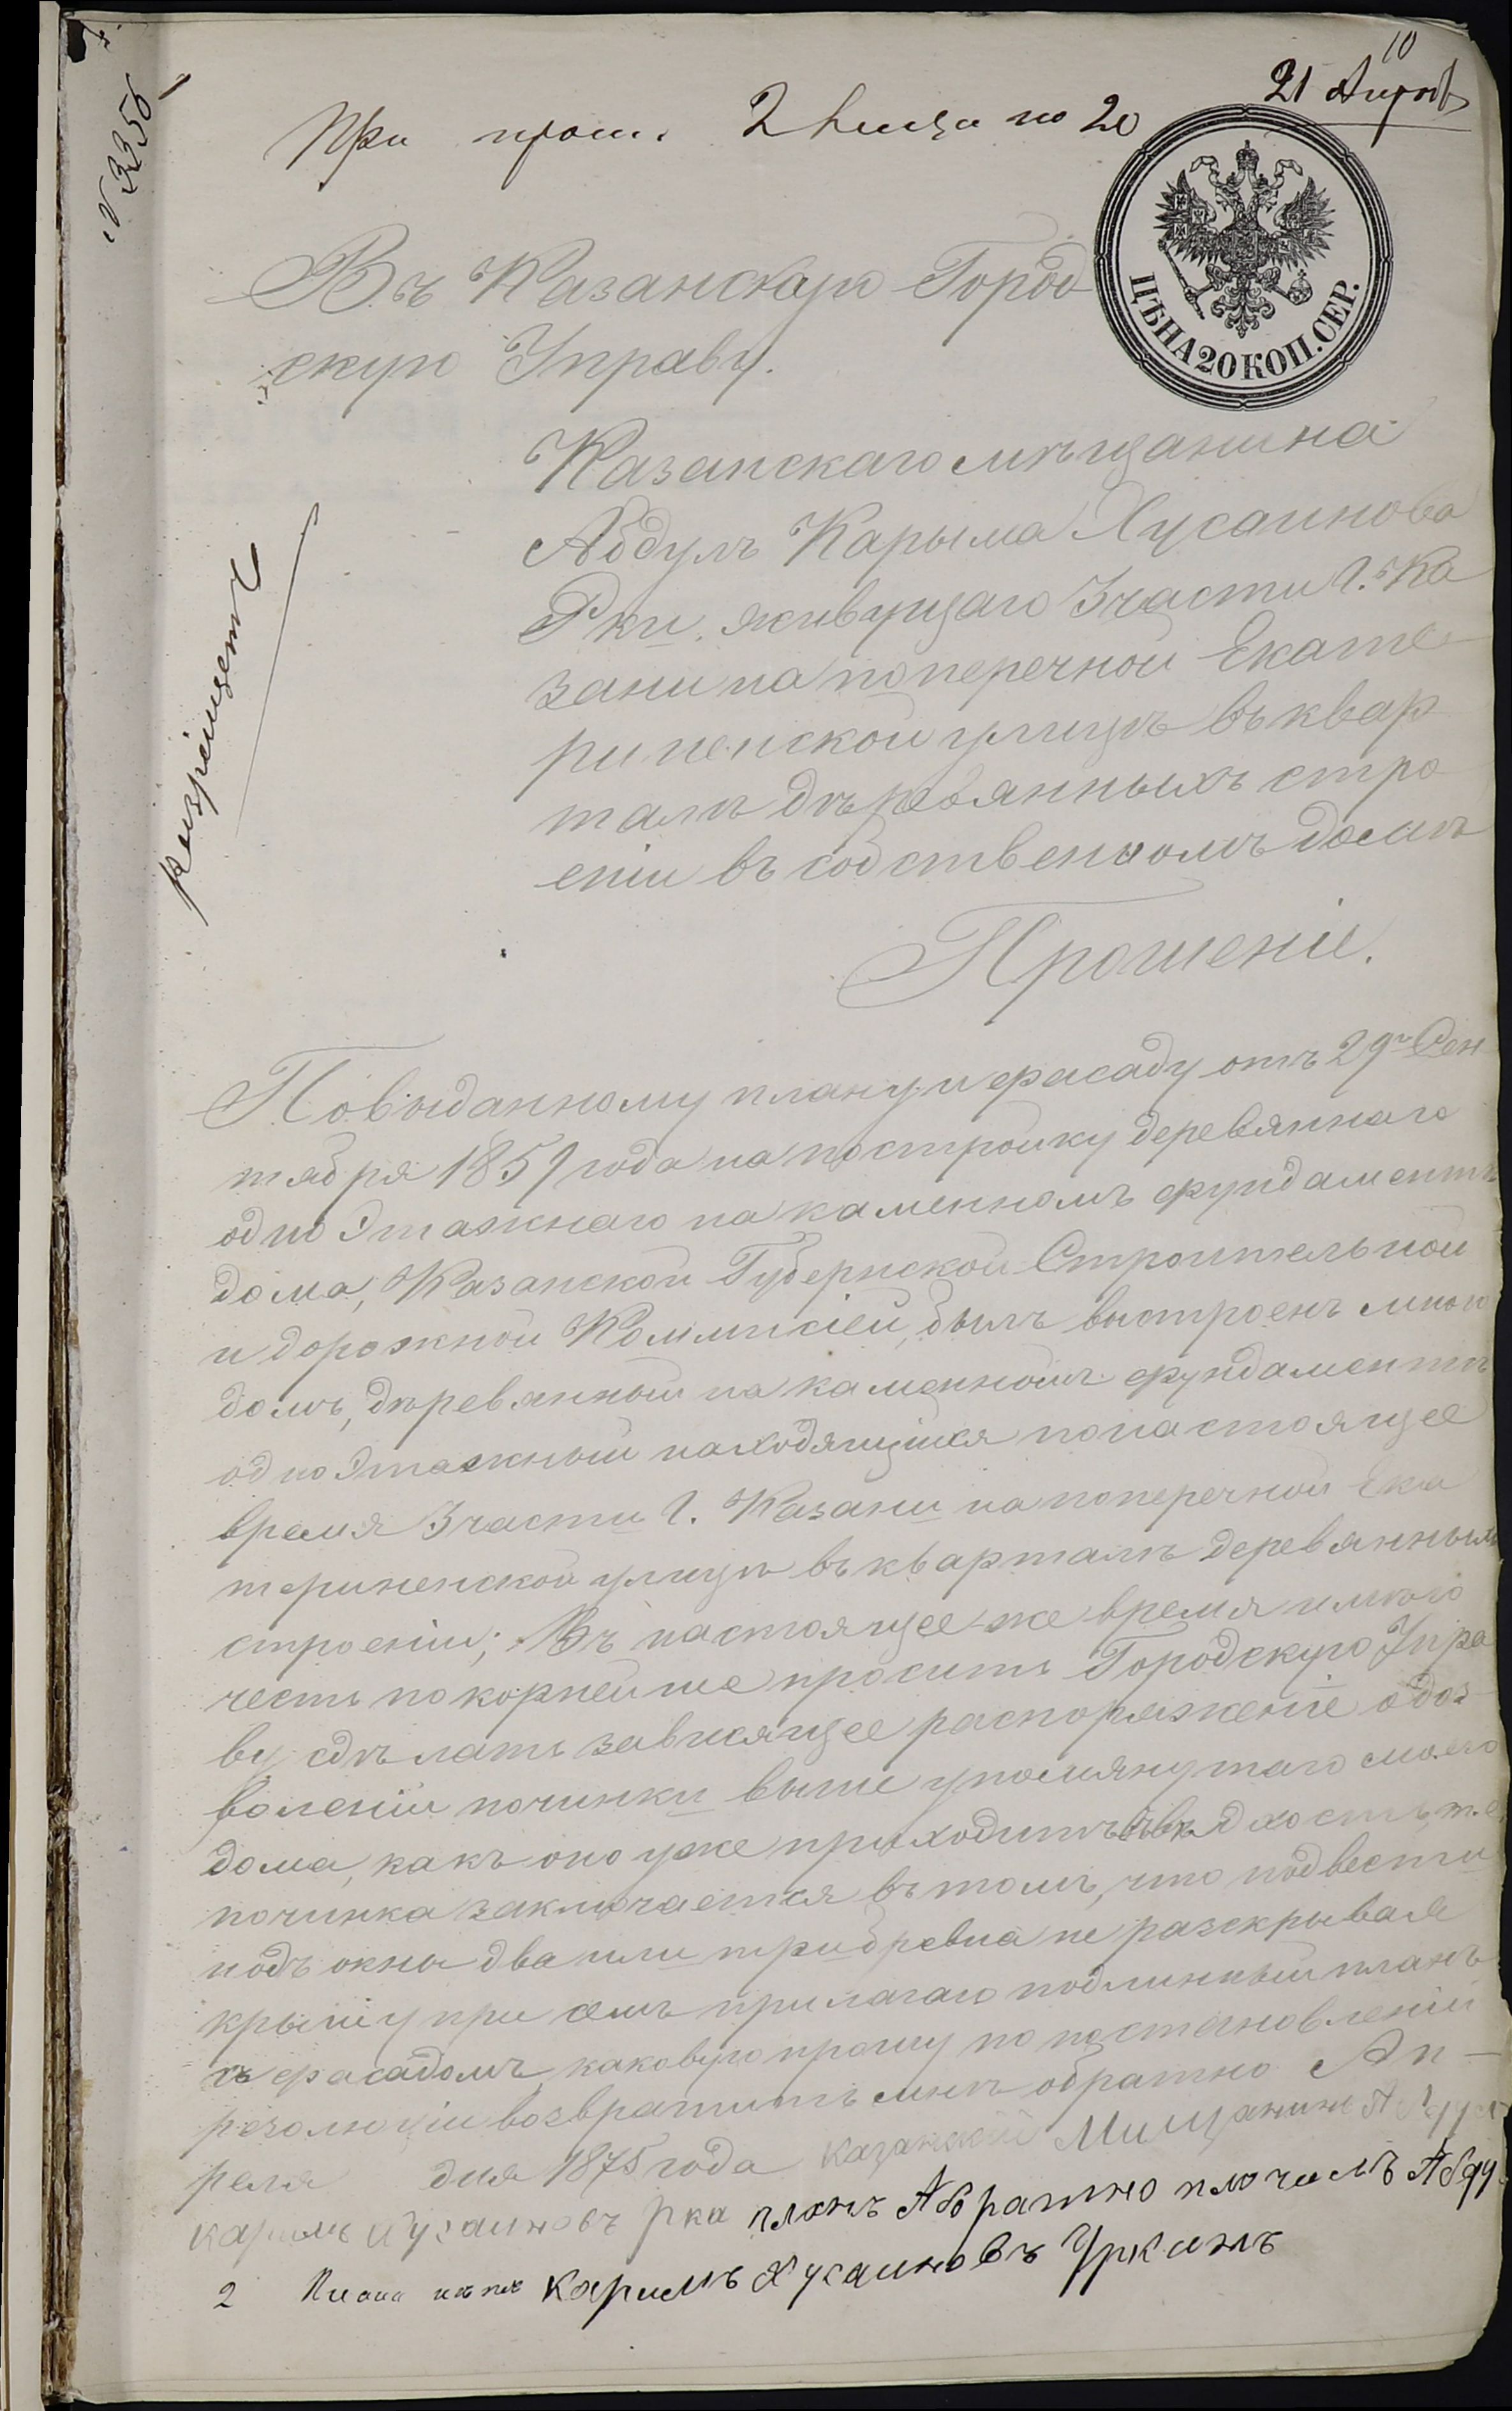 10
21 Апрель
№ 3356
При прош. 2 листа по 20
ЦѢНА 20 КОП. СЕР.
Въ Казанскую Город
скую Управу.
Казанскаго мѣщанина
Абдулъ Карыма Хусаинова
Рки. живущаго 3 части г. Ка
зани на поперечной Екате
риненской улицѣ въ квар
талѣ дѣревянныхъ стро
еніи въ собственномъ домѣ
Разрѣшается
Прошеніе.
По выданному плану и фасаду отъ 29го Сен
тября 1859 года на постройку деревяннаго
одно Этажнаго на каменномъ фундаментѣ
дома, Казанской Губернской Строительной
и дорожной Коммисіей, былъ выстроенъ мною
домъ, дѣревянной на каменномъ фундаментѣ
одно Этажный находящийся по настоящее
время 3 части г. Казани на поперечной Ека
териненской улицѣ въ кварталѣ деревянныхъ
строеніи; Въ настоящее же время имѣю
честь покорнейше просить Городскую Упра
ву сдѣлать зависящее распоряженіе о доз
воленіи починки выше упомянутаго моего
дома, какъ оно уже приходитъ въ вѣдхость, т.е.
починка заключается въ томъ, что подвести
подъ окны два или три бревна не раскрывая
крышу при семъ прилагаю подлинный планъ
съ фасадомъ, каковую прошу по постановленіи
резолюціи возвратить мнѣ обратно Ап-
реля дня 1875 года Казанской Мищанинъ Абдул
Каримъ Хусаиновъ Рка планъ Абратно получилъ Абду
2 Каримъ Хусаиновъ Уркинъ